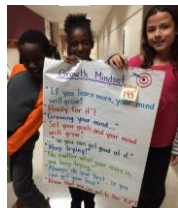 Growth Mindset
"If you learn more, your mind
will grow!
Ready for it!
"Growing your mind..."
"Set your goals and your mind
will grow"
"so you can get good at it"
"Keep trying!"
No matter what your score is
you keep trying"
"Always do your best, so you
can get your best"
"Know that you need to